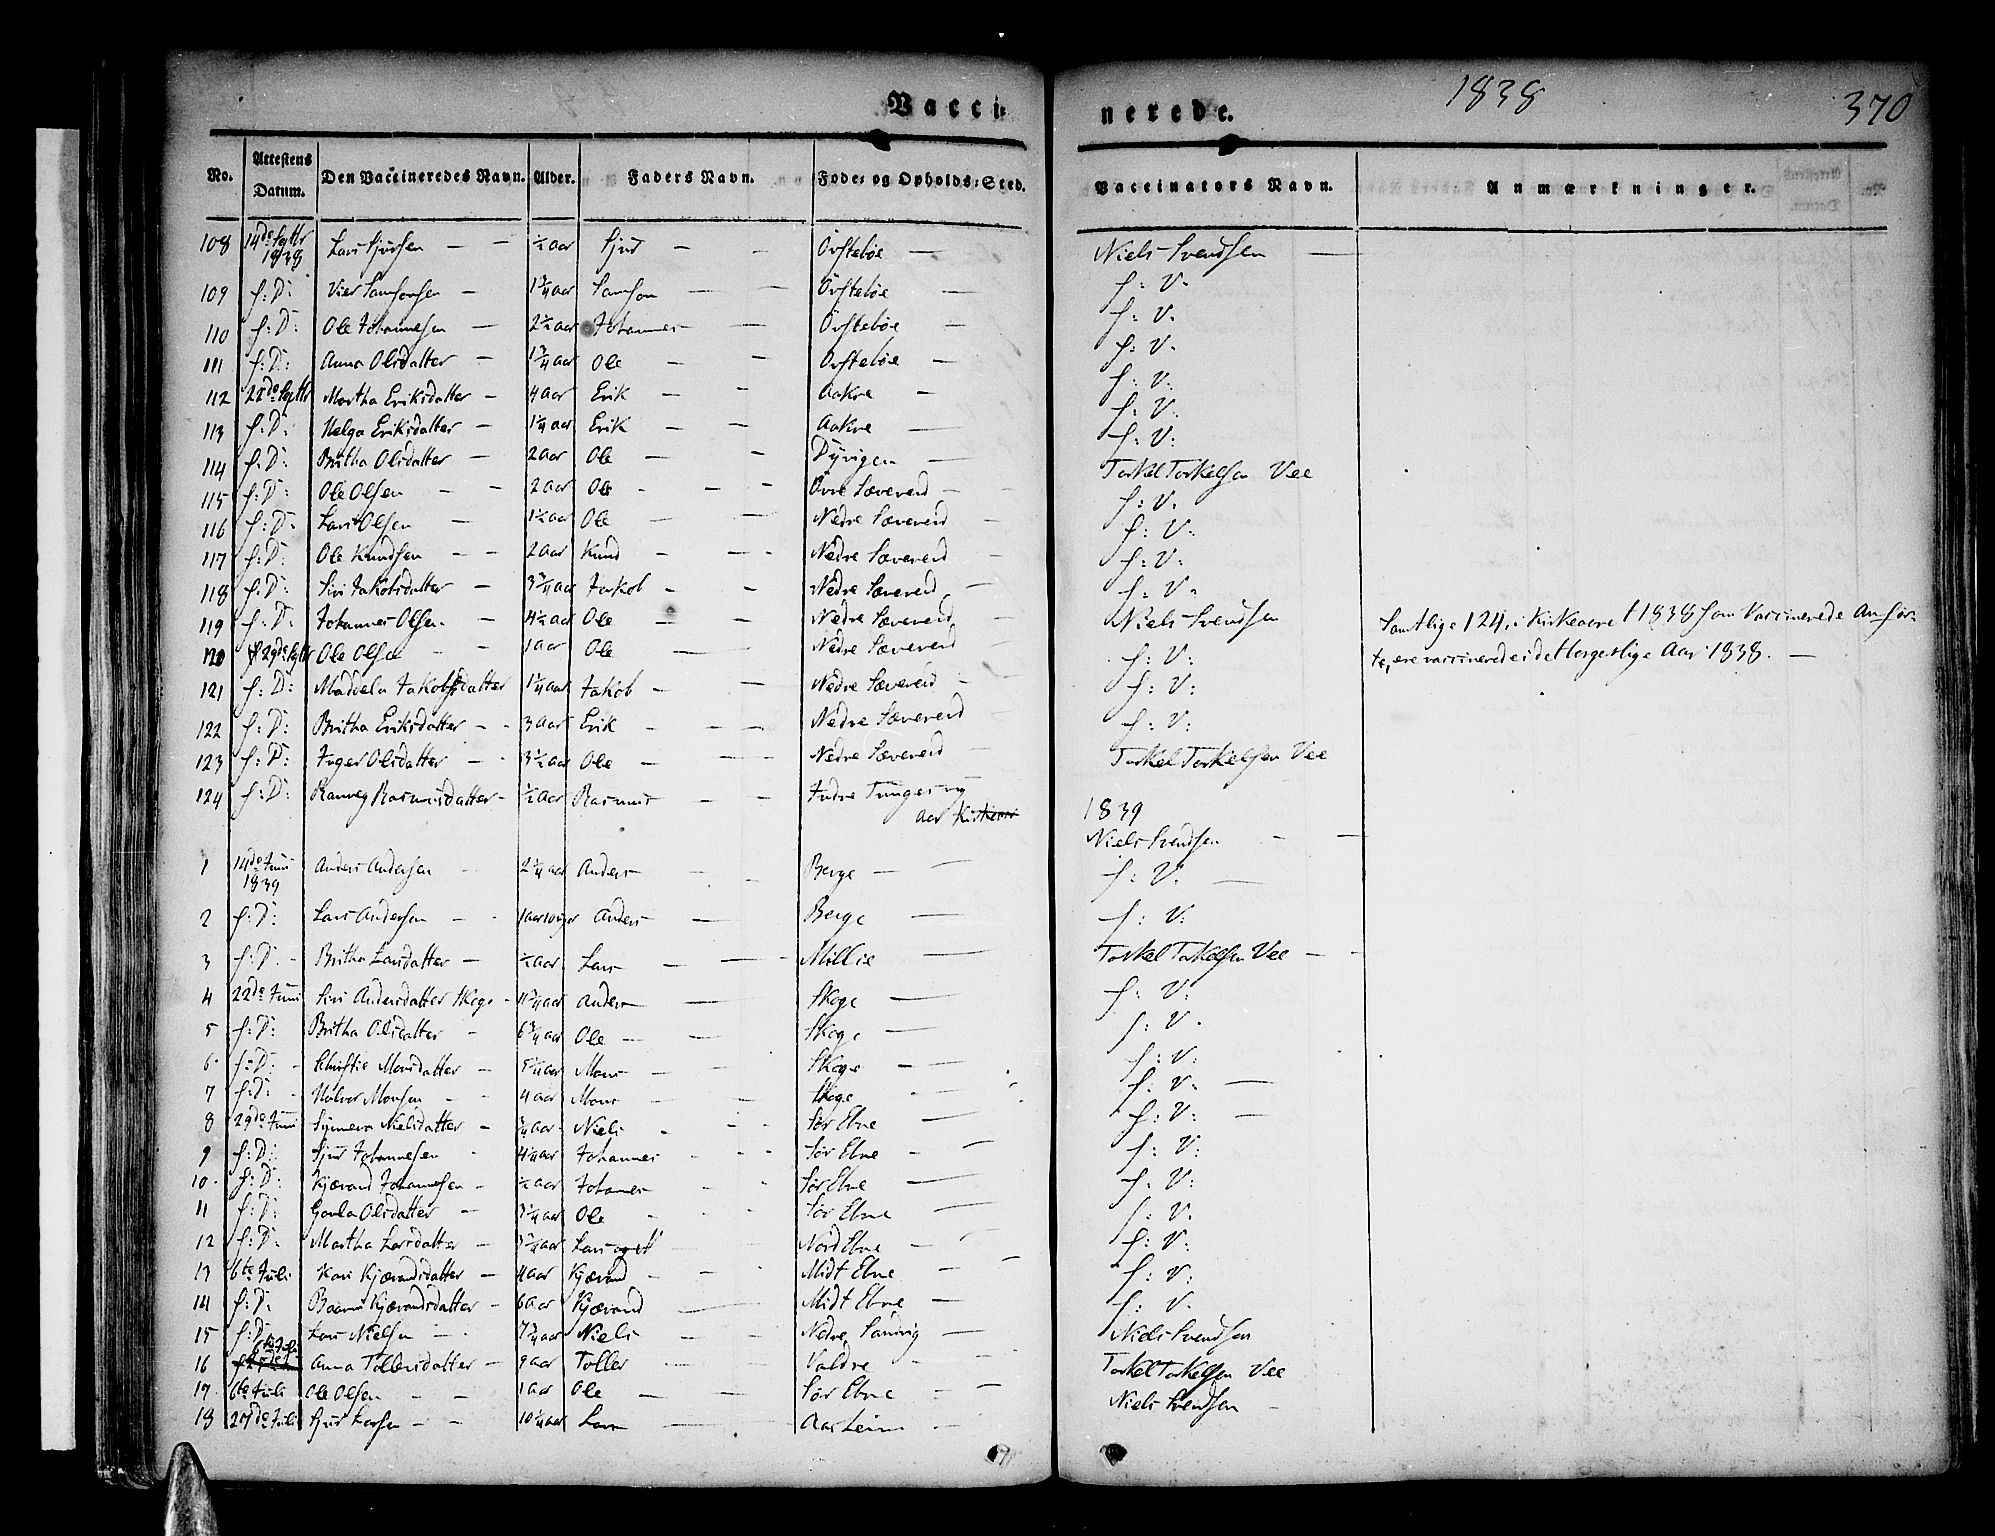 Vacci-
nerede.
1838
370
No. Attestens Datum. Den Vaccineredes Navn. Alder. Faders Navn. Føde- og Opholds-Sted. Vaccinators Navn. Anmærkninger.
108 14de Septbr 1838 Lars Sjursen — ½ aar Sjur — Øvstebøe — Niels Svendsen —
109 f: D: Vier Samsonsen — 1¾ aar Samson — Øvstebøe — f: V.
110 f: D: Ole Johannesen — 2½ aar Johannes — Øvstebøe — f: V.
111 f: D: Anna Olsdatter — 1¾ aar Ole — Øvstebøe — f: V.
112 22de Septbr Martha Eriksdatter — 4 aar Erik — Aakre — f: V:
113 f: D: Helga Eriksdatter — 1¼ aar Erik — Aakre — f: V.
114 f: D: Britha Olsdatter — 2 aar Ole — Dyvigen — f: V:
115 f: D: Ole Olsen — 2 aar Ole — Øvre Sævereid — Torkel Torkelsen Vee
116 f: D: Lars Olsen — 1½ aar Ole — Nedre Sævereid — f: V.
117 f: D: Ole Knudsen — 2 aar Knud — Nedre Sævereid — f: V:
118 f: D: Siri Jakobsdatter — 3¾ aar Jakob — Nedre Sævereid — f: V:
119 f: D: Johannes Olsen — 4½ aar Ole — Nedre Sævereid — f: V.
120 29de Septbr Ole Olsen — 1 aar Ole — Nedre Sævereid — Niels Svendsen
Samtlige 124, i Kirkeaaret 1838 som Vaccinerede Anfør-
te, ere vaccinerede i det borgerlige Aar 1838. —
121 f: D: Maddela Jakobsdatter 1¼ aar Jakob — Nedre Sævereid — f: V:
122 f: D: Britha Eriksdatter — 3 aar Erik — Nedre Sævereid — f: V:
123 f: D: Inger Olsdatter — 3½ aar Ole — Nedre Sævereid — f: V:
124 f: D: Ranveg Rasmusdatter — ½ aar Rasmus — Indre Tungesvig Torkel Torkelsen Vee
Aar 1839
1 14de Juni 1839 Anders Andersen 2¼ aar Anders — Berge — Niels Svendsen —
2 f: D: Lars Andersen — Anders — Berge — f: V: —
3 f: D. Britha Larsdatter — ½ aar Lars — Millie — f: V:
4 22de Juni Siri Andersdatter Skoge — Anders — Skoge — Torkel Torkelsen Vee —
5 f: D: Britha Olsdatter — 6¾ aar Ole — Skoge — f: V:
6 f: D: Christie Monsdatter — Mons — Skoge — f: V.
7 f: D: Halvor Monsen — 4 aar Mons — Skoge — f: V:
8 29de Juni Synneva Nielsdatter — ¾ aar Niels — Sør Etne — f. V. —
9 f: D: Sjur Johannesen — 4¼ aar Johannes — Sør Etne — f: V: —
10 f: D: Kjærand Johannesen — ½ aar Johannes — Sør Etne — f: V:
11 f: D: Gonla Olsdatter — Ole — Sør Etne — f: V:
12 f: D. Martha Larsdatter — Lars — Nord Etne — f: V.
13 6te Juli Kari Kjærandsdatter — 4 aar Kjærand — Midt Etne — f: V:
14 f: D. Kjærandsdatter — 6 aar Kjærand — Midt Etne — f: V:
15 f: D. Lars Nielsen — 7¾ aar Niels — Nedre Sandvig — f: V.
16 6te Juli Anna Tollersdatter — 9 aar Toller — Valdre — Niels Svendsen
17 6te Juli Ole Olsen — 1 aar Ole — Sør Etne — Torkel Torkelsen Vee
18 27de Juli Sjur Larsen — 10¼ aar Lars — Aarheim — Niels Svendsen